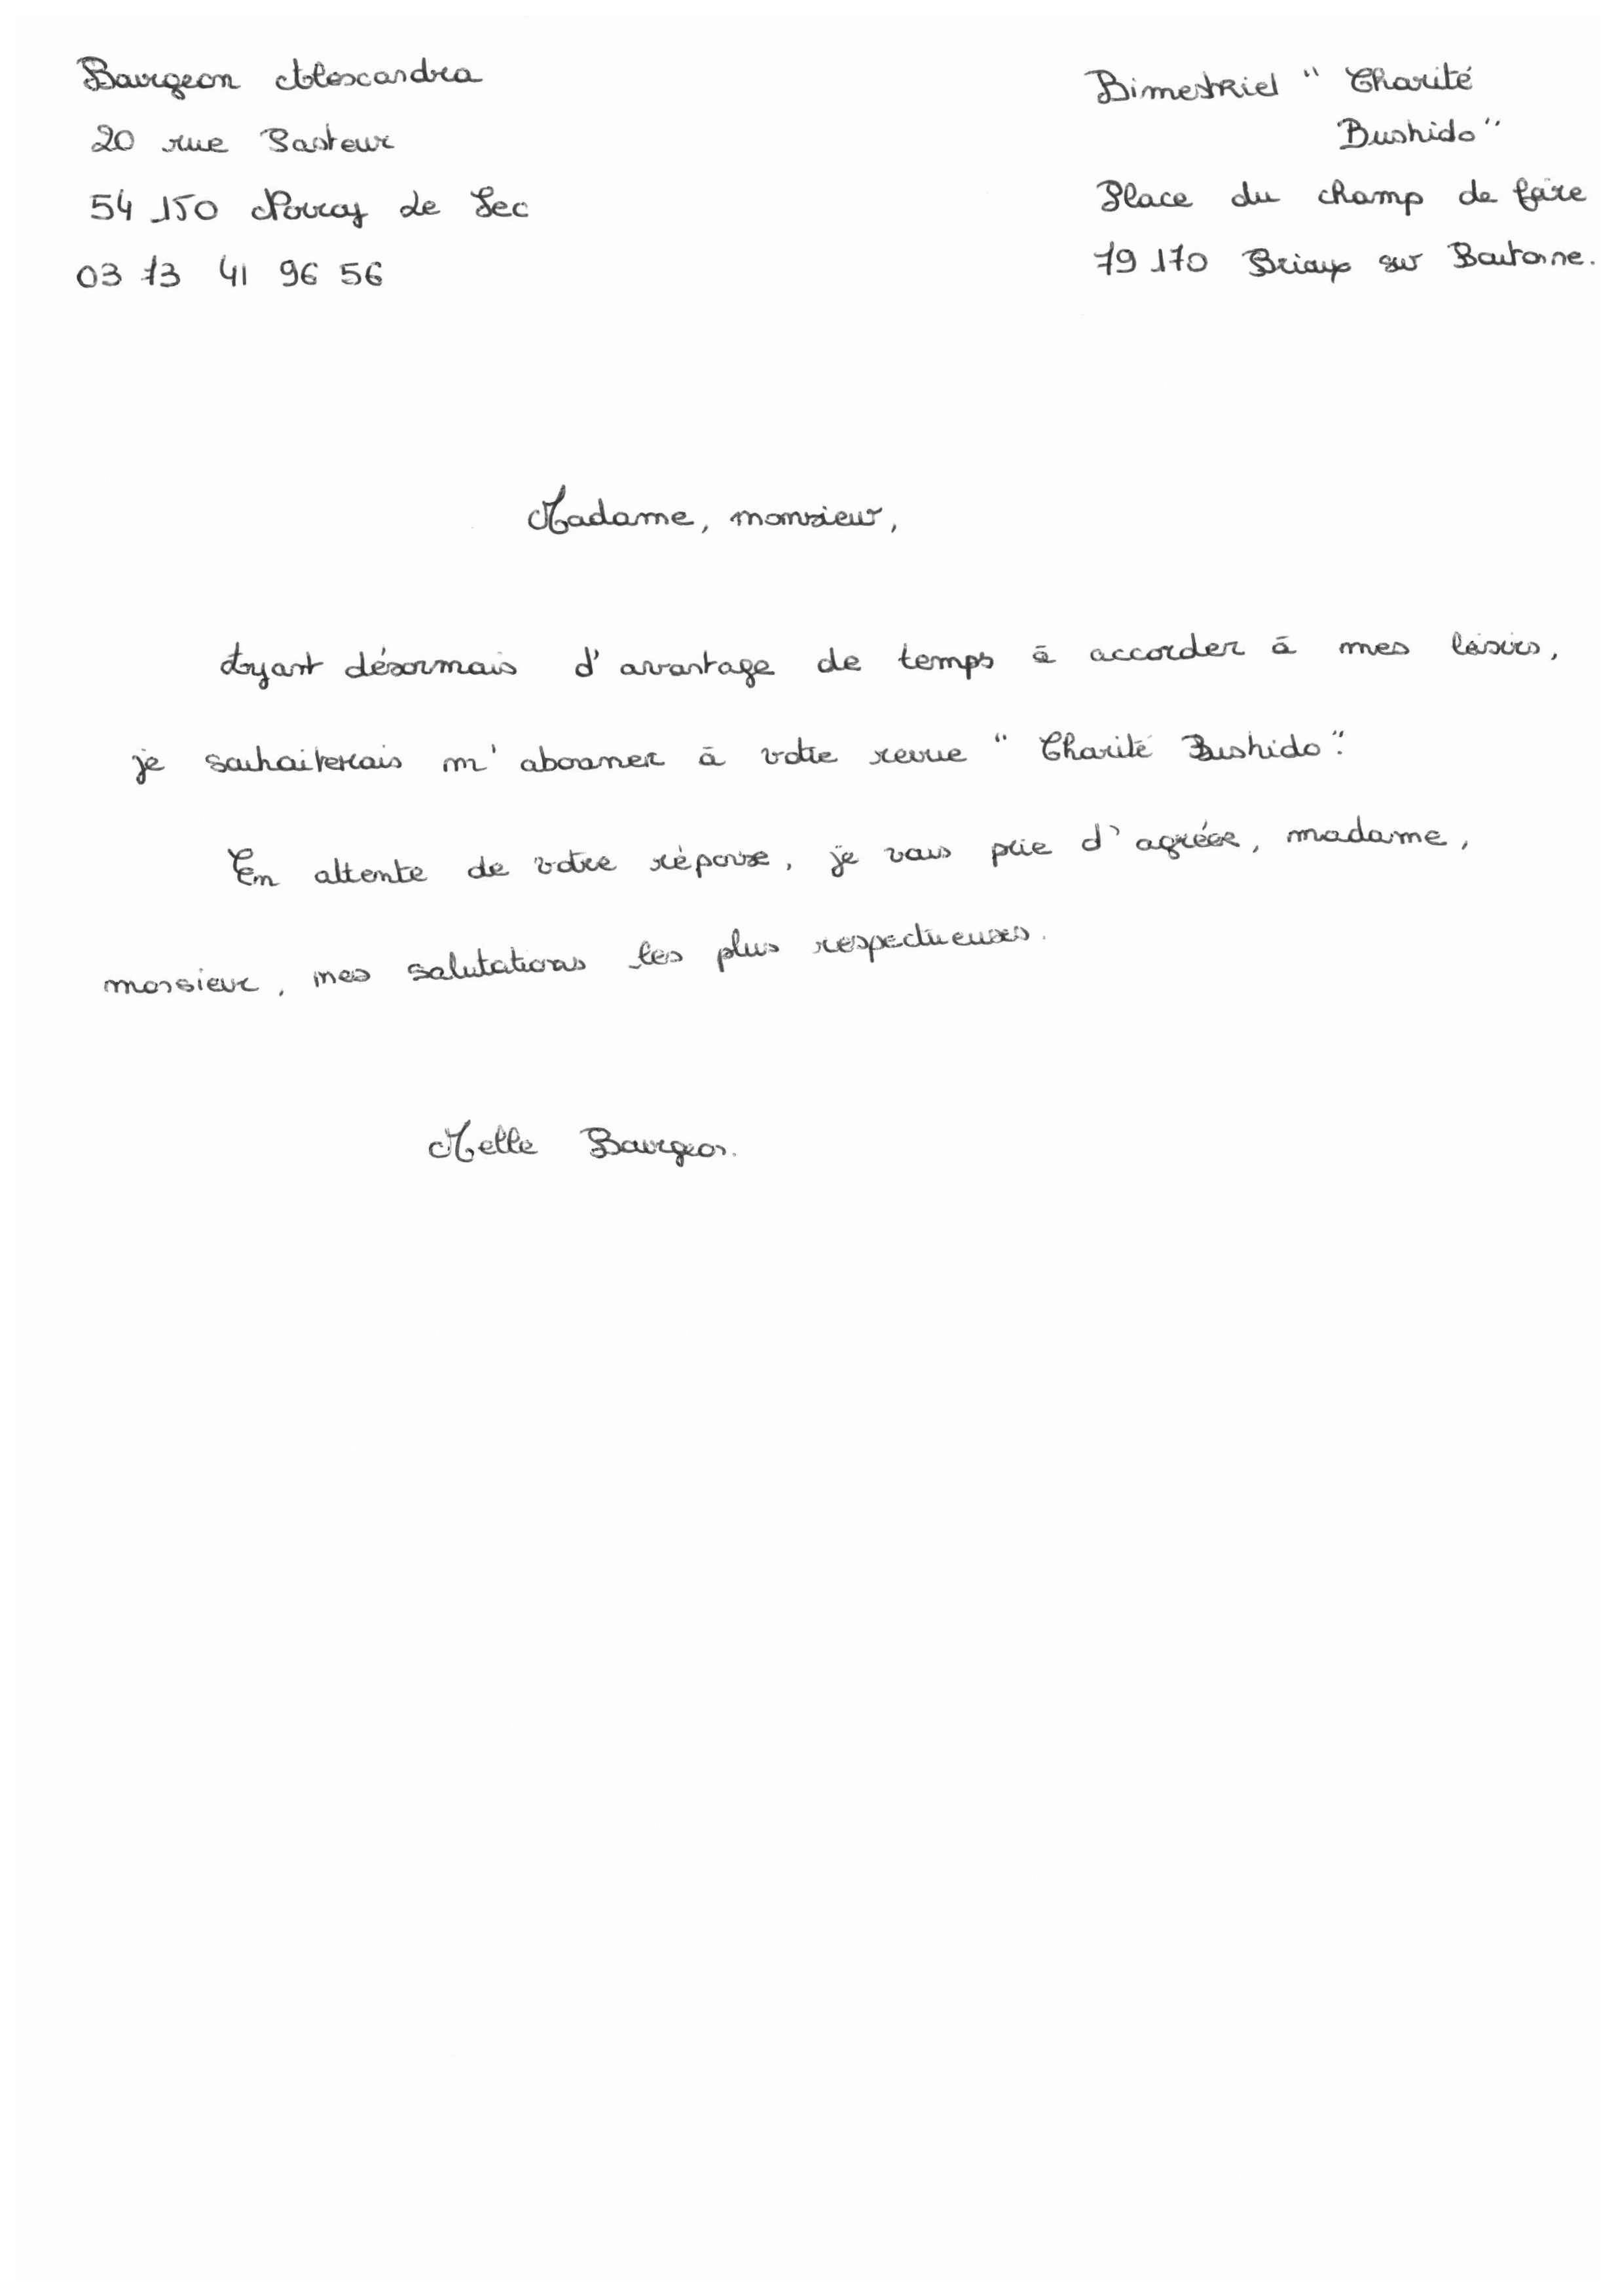 Bourgeon Alexandra
20 rue Pasteur
54 150 Norroy Le Sec
03 73 41 96 56
Bimestriel " Charité
Bushido "
Place du champ de foire
79 170 Brioux sur Boutonne.
Madame, monsieur,
Ayant désormais d'avantage de temps à accorder à mes loisirs,
je souhaiterais m'abonner à votre revue " Charité Bushido ".
En attente de votre réponse, je vous prie d'agréer, madame,
monsieur, mes salutations les plus respectueuses.
Melle Bourgeon.